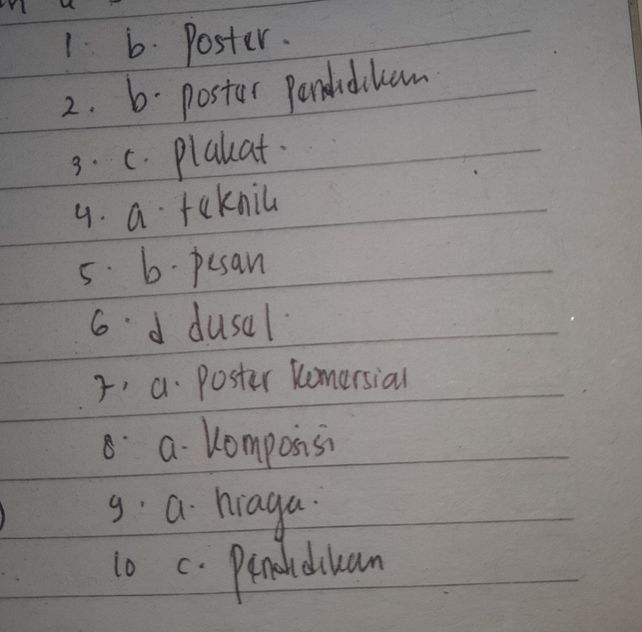 1. b. Poster.
2. b. poster Pendidikan
3. c. plakat.
4. a. teknik
5. b. pesan
6. d dusel.
7. a. poster komersial
8. a. komposisi
9. a. niaga.
10 c. pendidikan